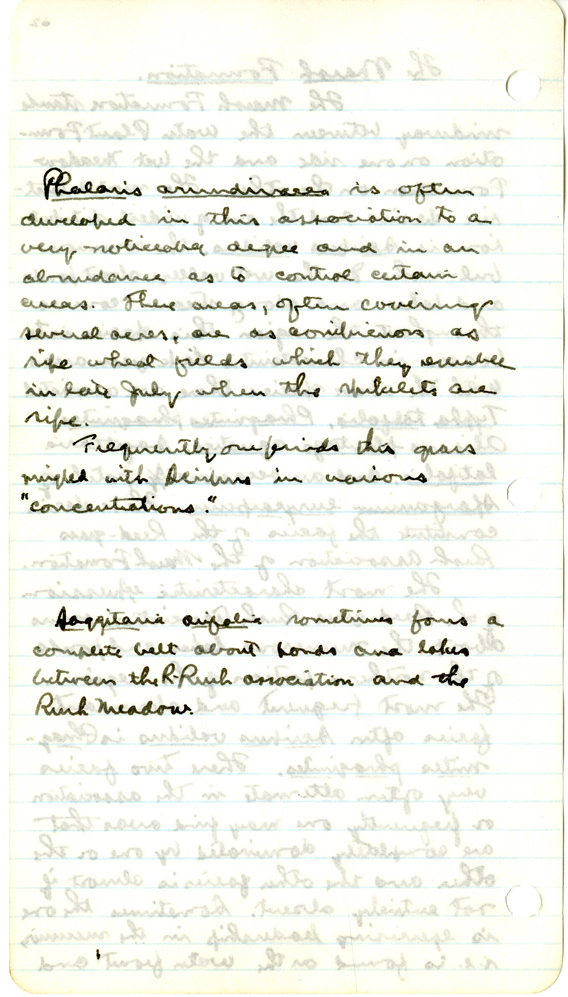 Phalaris arundinacea is often
developed in this association to a
very noticeable degree and in an
abundance as to control certain
areas. These areas, often covering
several acres, are as conspicuous as
ripe wheat fields which they resemble
in late July when the spikelets are
ripe.
Frequently one finds this grass
mingled with Scirpus in various
"concentrations."
Saggitaria arifolia sometimes forms a
complete belt about ponds and lakes
between the R-Rush association and the
Rush Meadow.